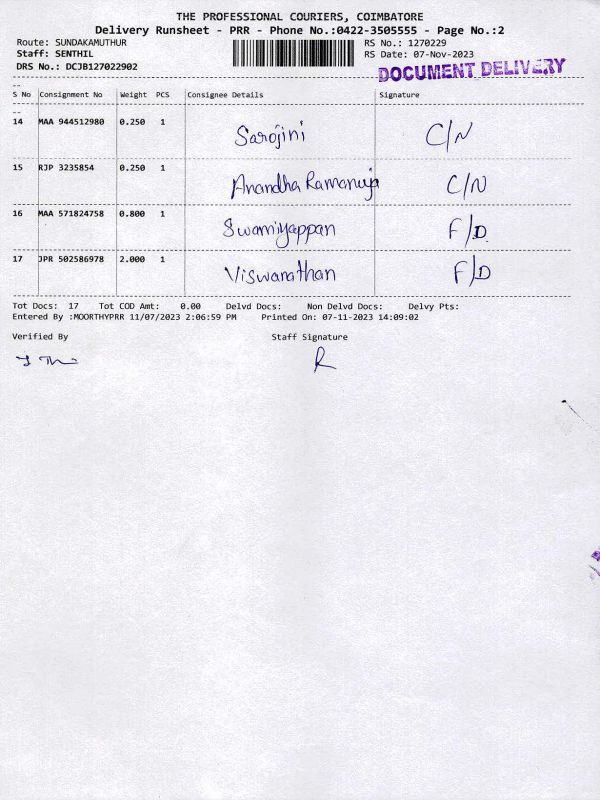 THE PROFESSIONAL COURIERS, COIMBATORE
Delivery Runsheet - PRR - Phone No.:0422-3505555 - Page No.:2
Route: SUNDAKAMUTHUR RS No.: 1270229
Staff: SENTHIL RS Date: 07-Nov-2023
DRS No.: DCJB127022902 DOCUMENT DELIVERY
S No Consignment No Weight PCS Consignee Details Signature
14 MAA 944512980 0.250 1 Sarojini C/N
15 RJP 3235854 0.250 1 Anandha Ramanuja C/N
16 MAA 571824758 0.800 1 Swamiyappan F/D
17 JPR 502586978 2.000 1 Viswanathan F/D
Tot Docs: 17 Tot COD Amt: 0.00 Delvd Docs: Non Delvd Docs: Delvy Pts:
Entered By :MOORTHYPRR 11/07/2023 2:06:59 PM Printed On: 07-11-2023 14:09:02
Verified By Staff Signature
R